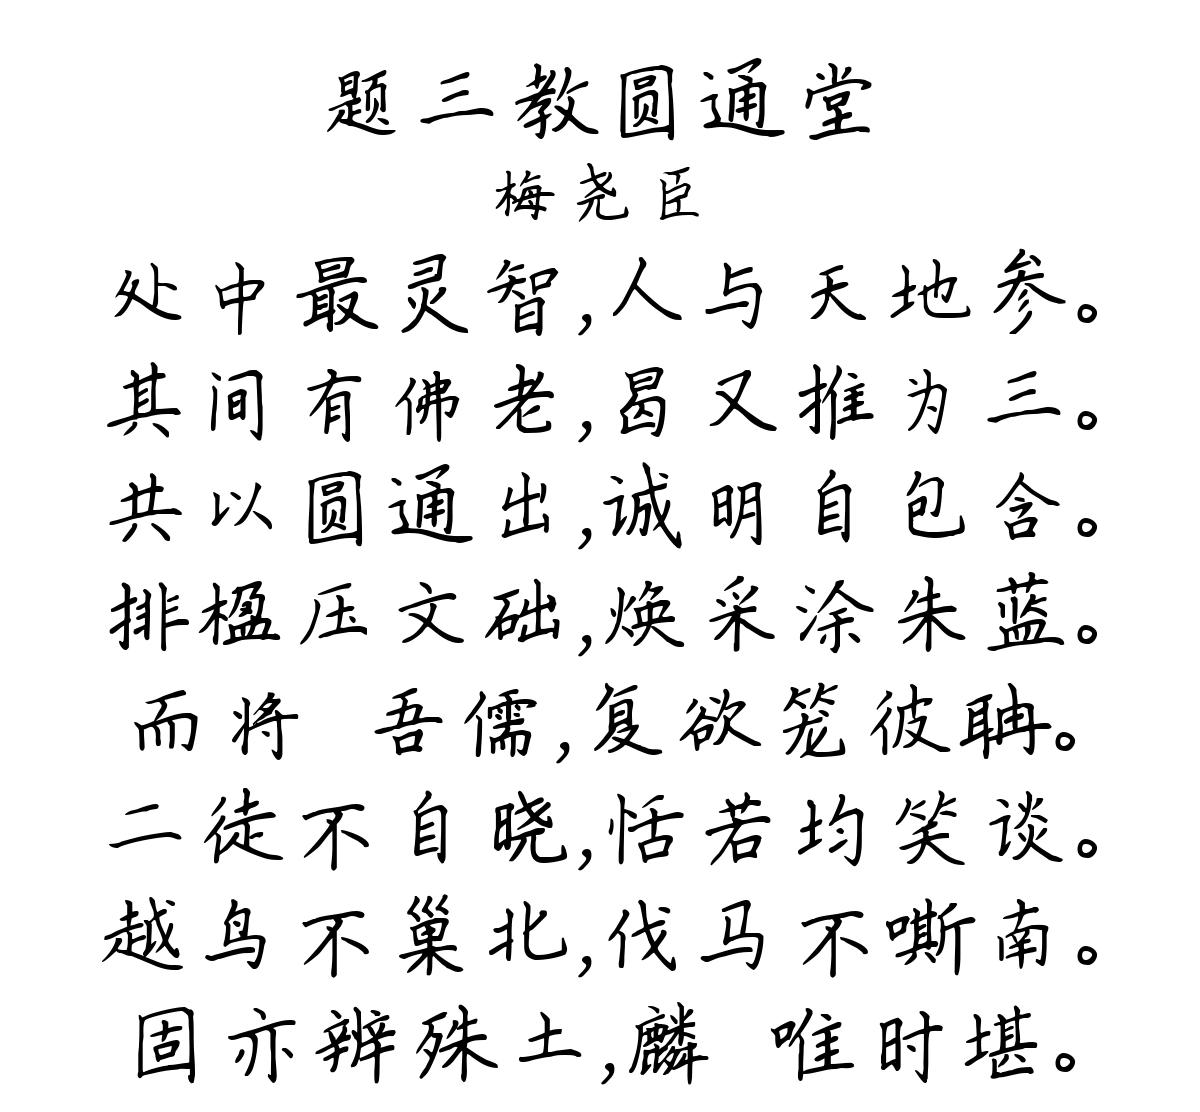 题三教圆通堂
梅尧臣
处中最灵智,人与天地参。
其间有佛老,曷又推为三。
共以圆通出,诚明自包含。
排楹压文础,焕采涂朱蓝。
而将 吾儒,复欲笼彼聃。
二徒不自晓,恬若均笑谈。
越鸟不巢北,伐马不嘶南。
固亦辨殊土,麟 唯时堪。